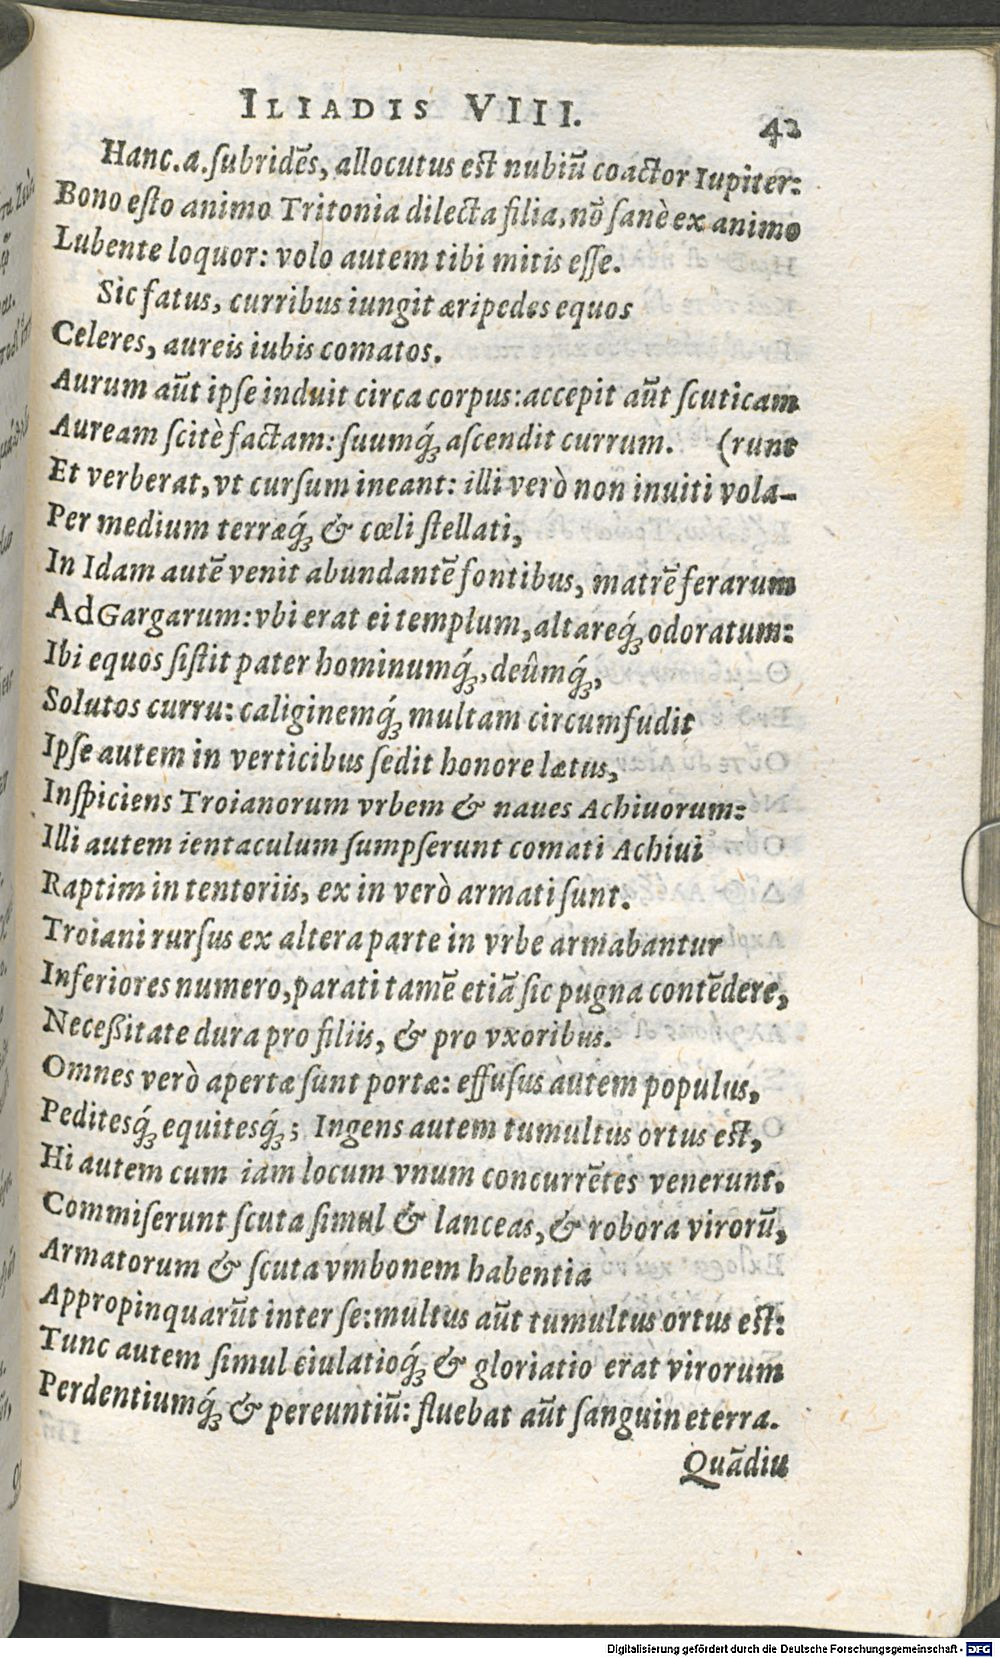 ILIADIS VIII. 42
Hanc.a.ſubridẽs, allocutus eſt nubiũ coactor Iupiter:
Bono eſto animo Tritonia dilecta filia, nõ ſanè ex animo
Lubente loquor: volo autem tibi mitis eſſe.
Sic fatus, curribus iungit æripedes equos
Celeres, aureis iubis comatos.
Aurum aũt ipſe induit circa corpus: accepit aũt ſcuticam
Auream ſcitè factam: ſuumq́; aſcendit currum. (runt
Et verberat, vt curſum ineant: illi verò non inuiti vola-
Per medium terræq́; & cœli ſtellati,
In Idam autẽ venit abundantẽ fontibus, matrẽ ferarum
Ad Gargarum: vbi erat ei templum, altareq́; odoratum:
Ibi equos ſiſtit pater hominumq́;, deûmq́;,
Solutos curru: caliginemq́; multam circumfudit
Ipſe autem in verticibus ſedit honore lætus,
Inſpiciens Troianorum vrbem & naues Achiuorum:
Illi autem ientaculum ſumpſerunt comati Achiui
Raptim in tentoriis, ex in verò armati ſunt.
Troiani rurſus ex altera parte in vrbe armabantur
Inferiores numero, parati tamẽ etiã ſic pugna contẽdere,
Neceßitate dura pro filiis, & pro vxoribus.
Omnes verò apertæ ſunt portæ: effuſus autem populus,
Peditesq́; equitesq́;; Ingens autem tumultus ortus eſt,
Hi autem cum iam locum vnum concurrẽtes venerunt.
Commiſerunt ſcuta ſimul & lanceas, & robora virorũ,
Armatorum & ſcuta vmbonem habentia
Appropinquarũt inter ſe: multus aũt tumultus ortus eſt:
Tunc autem ſimul eiulatioq́; & gloriatio erat virorum
Perdentiumq́; & pereuntiũ: fluebat aũt ſanguine terra.
Quãdiu
Digitalisierung gefördert durch die Deutsche Forschungsgemeinschaft - DFG